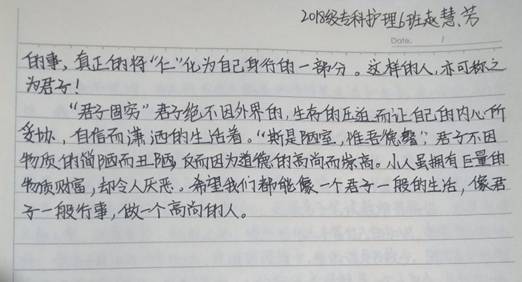 2018级专科护理6班赵慧芳
Date. /
的事,真正的将“仁”化为自己身行的一部分。这样的人,亦可称之
为君子!
“君子固穷”君子绝不因外界的,生存的压迫而让自己的内心所
妥协,自信而潇洒的生活着。“斯是陋室,惟吾德馨”;君子不因
物质的简陋而丑陋,反而因为道德的高尚而崇高。小人虽拥有巨量的
物质财富,却令人厌恶。希望我们都能像一个君子一般的生活,像君
子一般行事,做一个高尚的人。